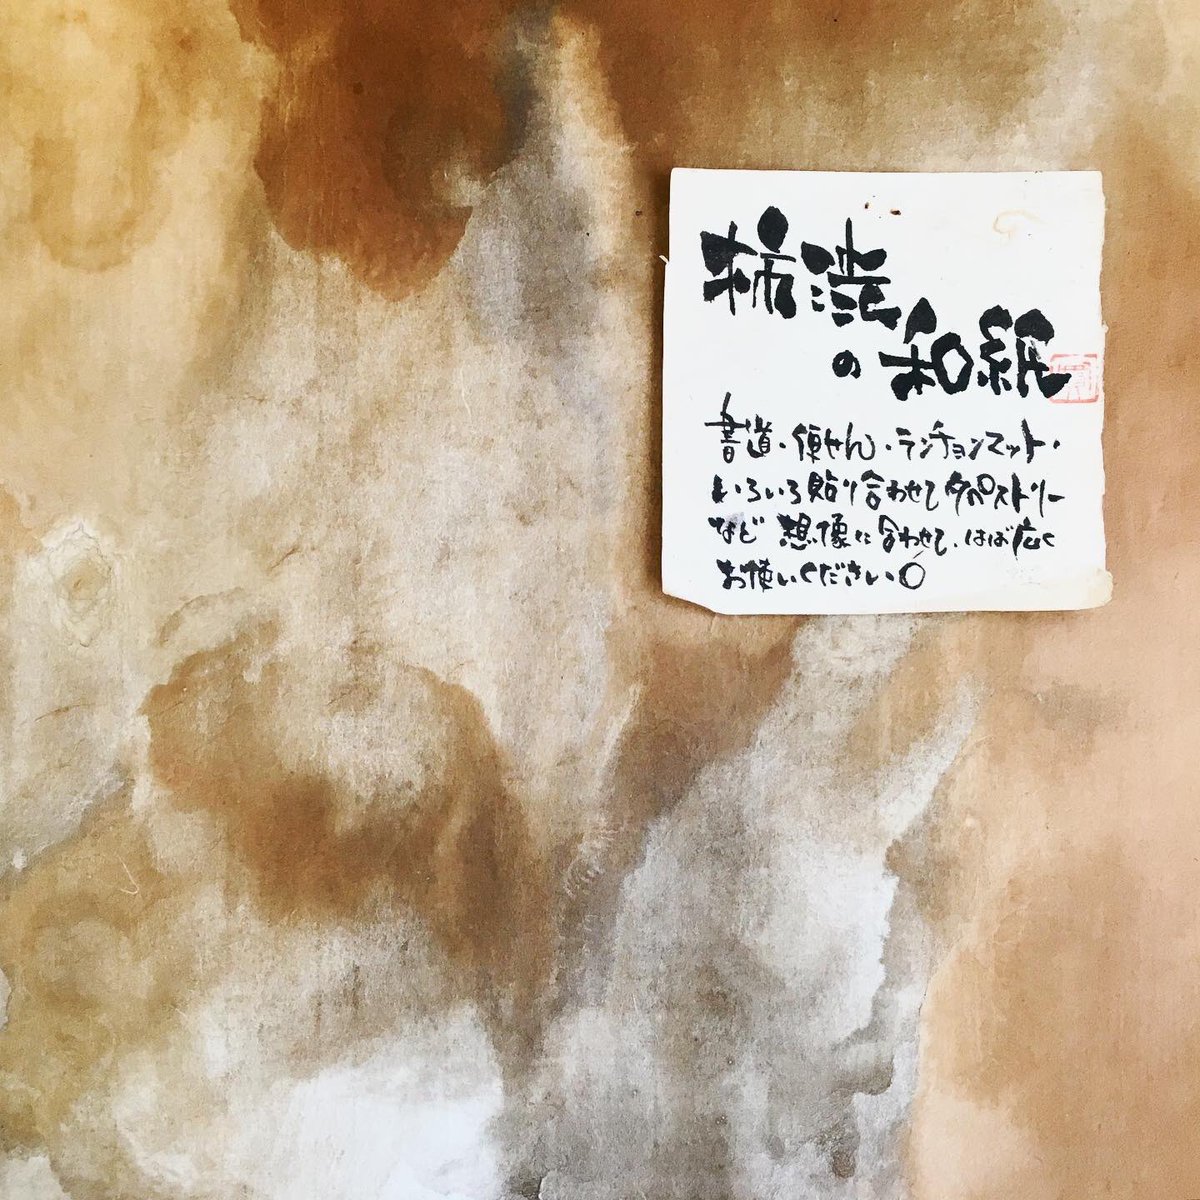 柿渋
の和紙
書道・便せん・ランチョンマット・
いろいろ貼り合わせてタペストリー
など 想像に合わせて、はば広く
お使いください。